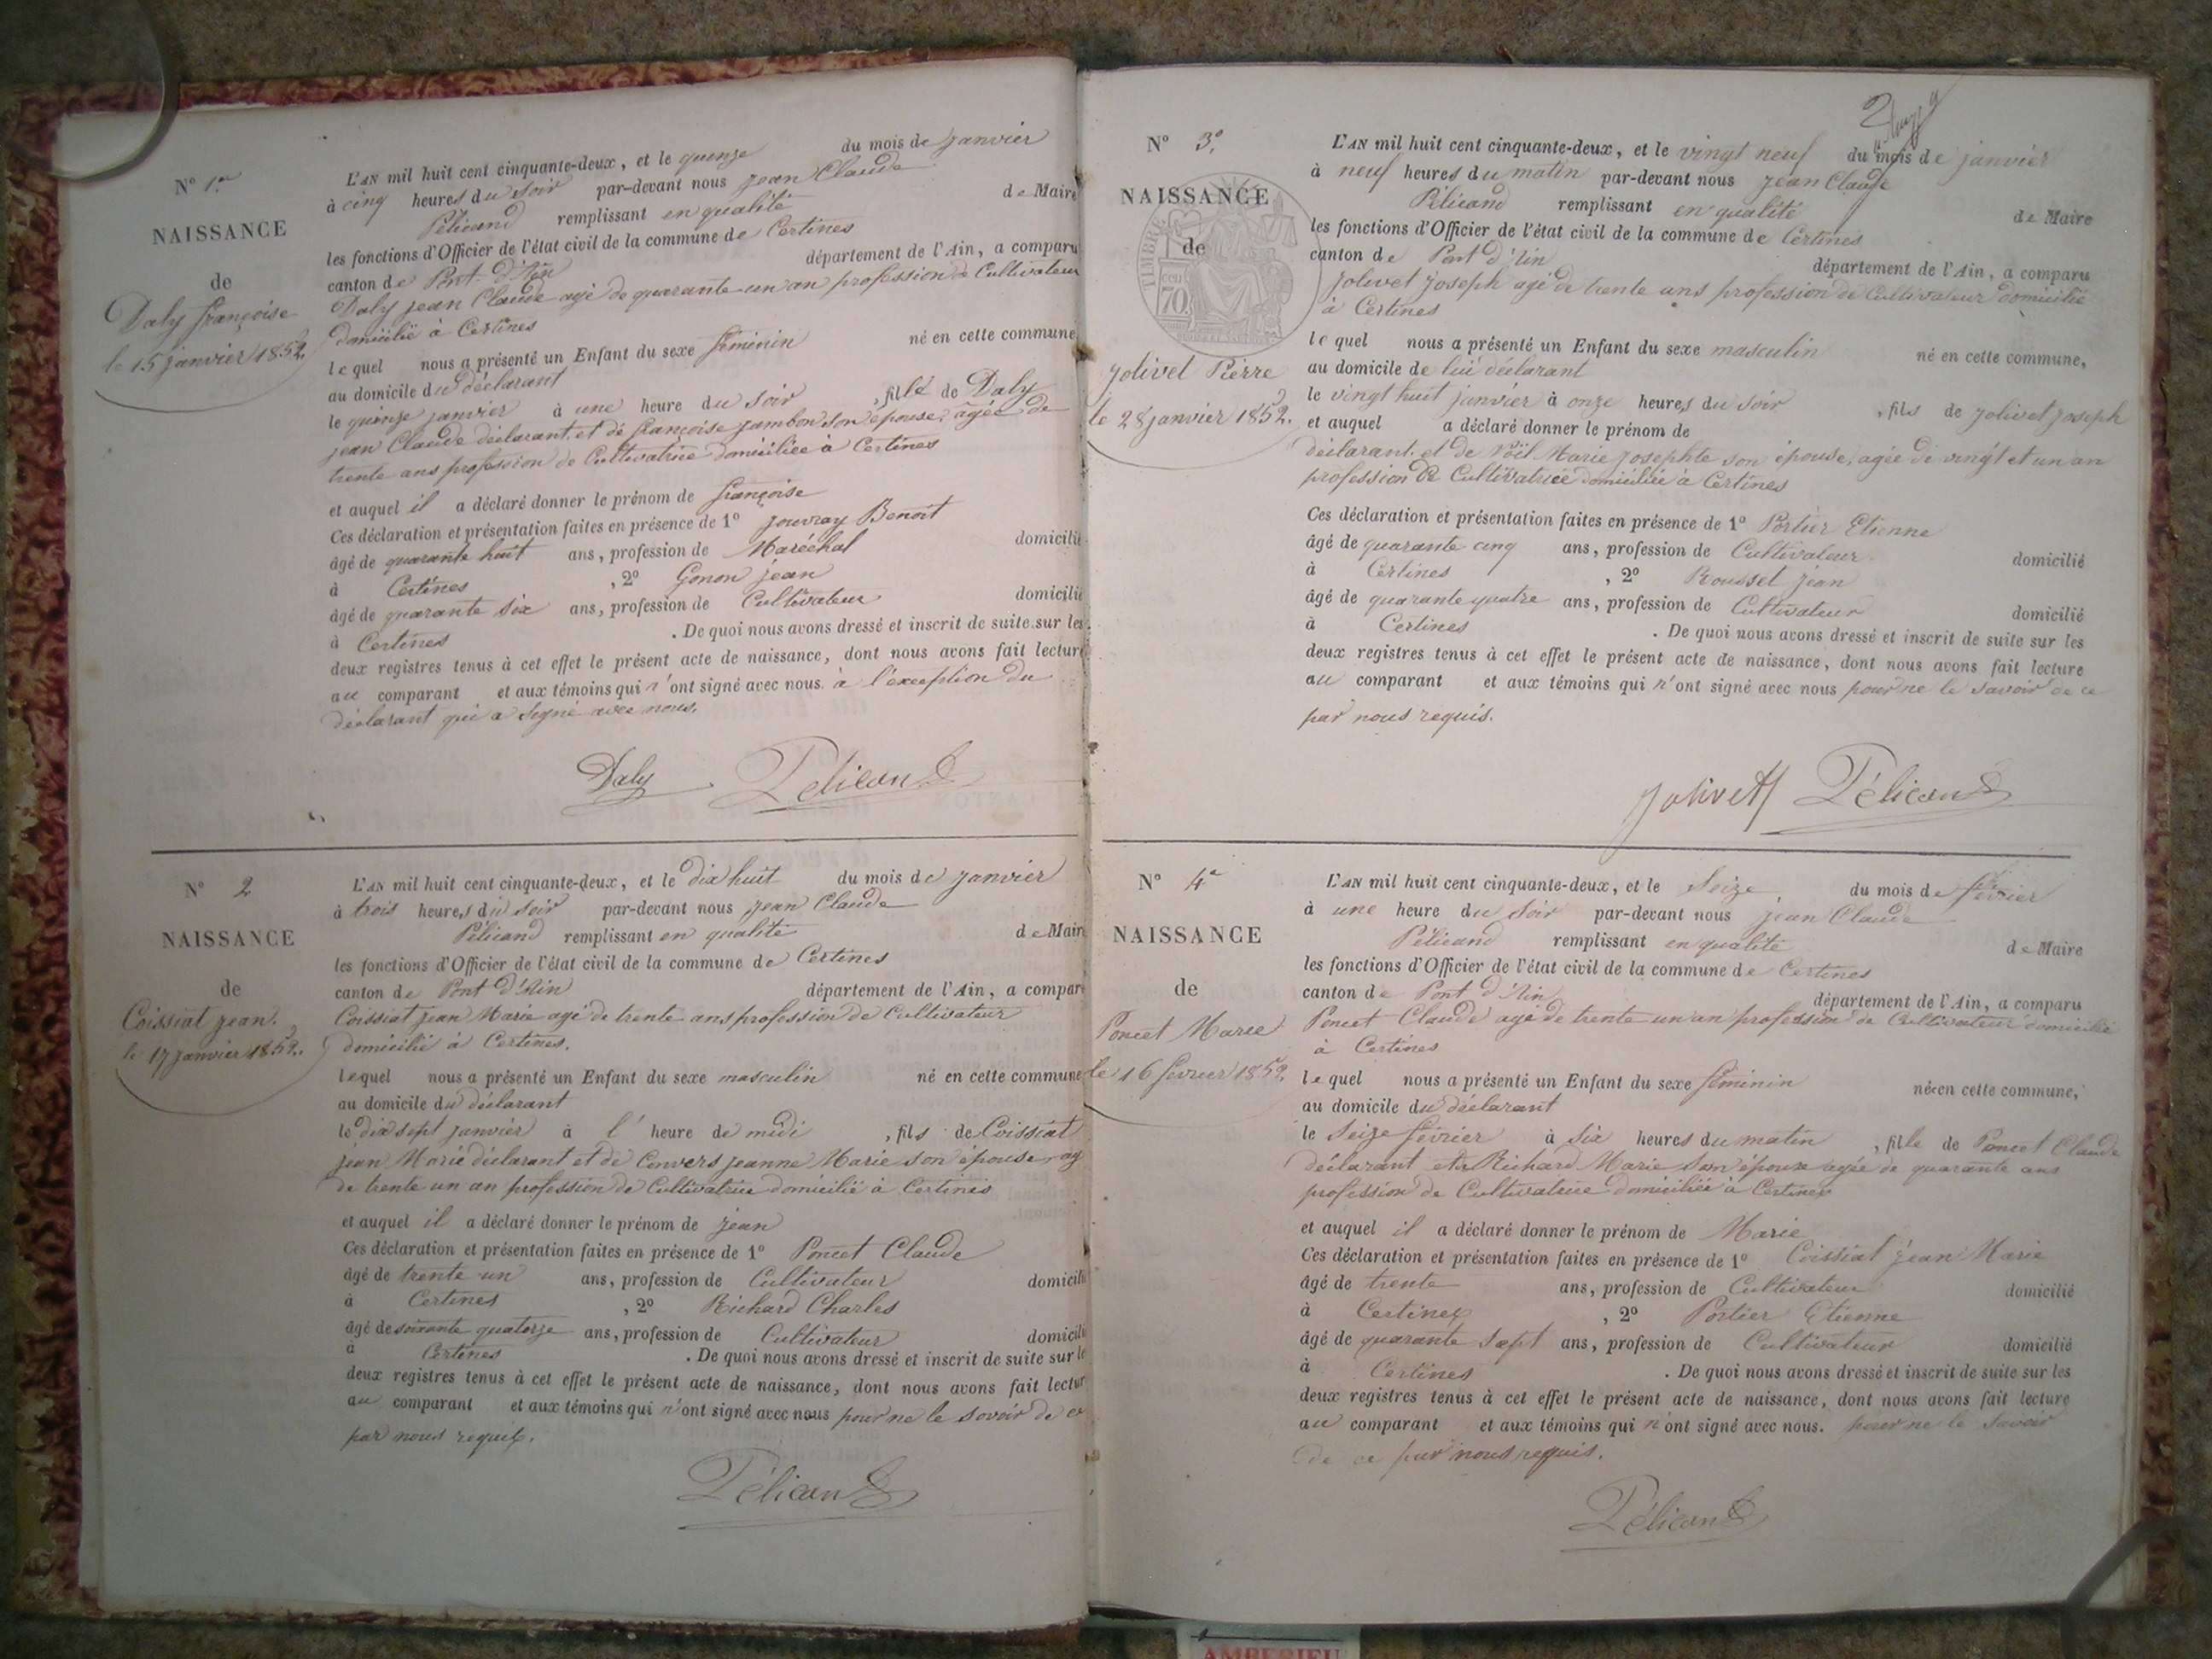 N° 1er
NAISSANCE
de
Daly françoise
le 15 janvier 1852.
L'AN mil huit cent cinquante-deux, et le quinze du mois de janvier
à cinq heures du soir par-devant nous jean Claude
Pélicand remplissant en qualité de Maire
les fonctions d'Officier de l'état civil de la commune de Certines
canton de Pont-d'Ain département de l'Ain, a comparu
Daly jean Claude agé de quarante-un an profession de Cultivateur
domicilié à Certines
lequel nous a présenté un Enfant du sexe féminin né en cette commune
au domicile du déclarant
le quinze janvier à une heure du soir, fille de Daly
jean Claude déclarant, et de françoise jambon son épouse, âgée de
trente ans profession de Cultivatrice domiciliée à Certines
et auquel il a déclaré donner le prénom de françoise
Ces déclaration et présentation faites en présence de 1° jouvray Benoit
âgé de quarante huit ans, profession de Maréchal domicilié
à Certines, 2° Gonon jean
âgé de quarante six ans, profession de Cultivateur domicilié
à Certines. De quoi nous avons dressé et inscrit de suite sur les
deux registres tenus à cet effet le présent acte de naissance, dont nous avons fait lecture
au comparant et aux témoins qui n'ont signé avec nous. à l'exception du
déclarant qui a signé avec nous.
Daly Pélicand
N° 2
NAISSANCE
de
Coissiat jean.
le 17 janvier 1852.
L'AN mil huit cent cinquante-deux, et le dix huit du mois de janvier
à trois heures du soir par-devant nous jean Claude
Pélicand remplissant en qualité de Maire
les fonctions d'Officier de l'état civil de la commune de Certines
canton de Pont d'Ain département de l'Ain, a compar
Coissiat jean Marie agé de trente ans profession de Cultivateur
domicilié à Certines.
lequel nous a présenté un Enfant du sexe masculin né en cette commune
au domicile du déclarant
le dix sept janvier à l'heure de midi, fils de Coissiat
jean Marie déclarant et de Convers jeanne Marie son épouse, ag
de trente un an profession de Cultivatrice domicilié à Certines
et auquel il a déclaré donner le prénom de jean
Ces déclaration et présentation faites en présence de 1° Poncet Claude
âgé de trente un ans, profession de Cultivateur domicili
à Certines, 2° Richard Charles
âgé de soixante quatorze ans, profession de Cultivateur domicili
à Certines. De quoi nous avons dressé et inscrit de suite sur le
deux registres tenus à cet effet le présent acte de naissance, dont nous avons fait lectur
au comparant et aux témoins qui n'ont signé avec nous pour ne le savoir de ce
par nous requis.
Pélicand
2
N° 3.
NAISSANCE
de
TIMBRE
70
jolivet Pierre
le 28 janvier 1852.
L'AN mil huit cent cinquante-deux, et le vingt neuf du mois de janvier
à neuf heures du matin par-devant nous jean Claude
Pélicand remplissant en qualité de Maire
les fonctions d'Officier de l'état civil de la commune de Certines
canton de Pont d'Ain département de l'Ain, a comparu
jolivet joseph agé de trente ans profession de Cultivateur domicilié
à Certines
lequel nous a présenté un Enfant du sexe masculin né en cette commune,
au domicile de lui déclarant
le vingt huit janvier à onze heures du soir, fils de jolivet joseph
et auquel a déclaré donner le prénom de
déclarant. et de Noël Marie josephte son épouse, agée de vingt et un an
profession de Cultivatrice domiciliée à Certines
Ces déclaration et présentation faites en présence de 1° Portier Etienne
âgé de quarante cinq ans, profession de Cultivateur domicilié
à Certines, 2° Rousset jean
âgé de quarante quatre ans, profession de Cultivateur domicilié
à Certines. De quoi nous avons dressé et inscrit de suite sur les
deux registres tenus à cet effet le présent acte de naissance, dont nous avons fait lecture
au comparant et aux témoins qui n'ont signé avec nous pour ne le savoir de ce
par nous requis.
Jolivet Pélicand
N° 4
NAISSANCE
de
Poncet Marie
le 16 février 1852.
L'AN mil huit cent cinquante-deux, et le Seize du mois de février
à une heure du soir par-devant nous jean Claude
Pélicand remplissant en qualité de Maire
les fonctions d'Officier de l'état civil de la commune de Certines
canton de Pont d'Ain département de l'Ain, a comparu
Poncet Claude agé de trente un an profession de Cultivateur domicilié
à Certines
lequel nous a présenté un Enfant du sexe féminin né en cette commune,
au domicile du déclarant
le Seize février à Six heures du matin, fille de Poncet Claude
déclarant et Richard Marie son épouse agée de quarante ans
profession de Cultivatrice domiciliée à Certines
et auquel il a déclaré donner le prénom de Marie
Ces déclaration et présentation faites en présence de 1° Coissiat jean Marie
âgé de trente ans, profession de Cultivateur domicilié
à Certines, 2° Portier Etienne
âgé de quarante sept ans, profession de Cultivateur domicilié
à Certines. De quoi nous avons dressé et inscrit de suite sur les
deux registres tenus à cet effet le présent acte de naissance, dont nous avons fait lecture
au comparant et aux témoins qui n'ont signé avec nous. pour ne le savoir
de ce par nous requis.
Pélicand
AMBERIEU